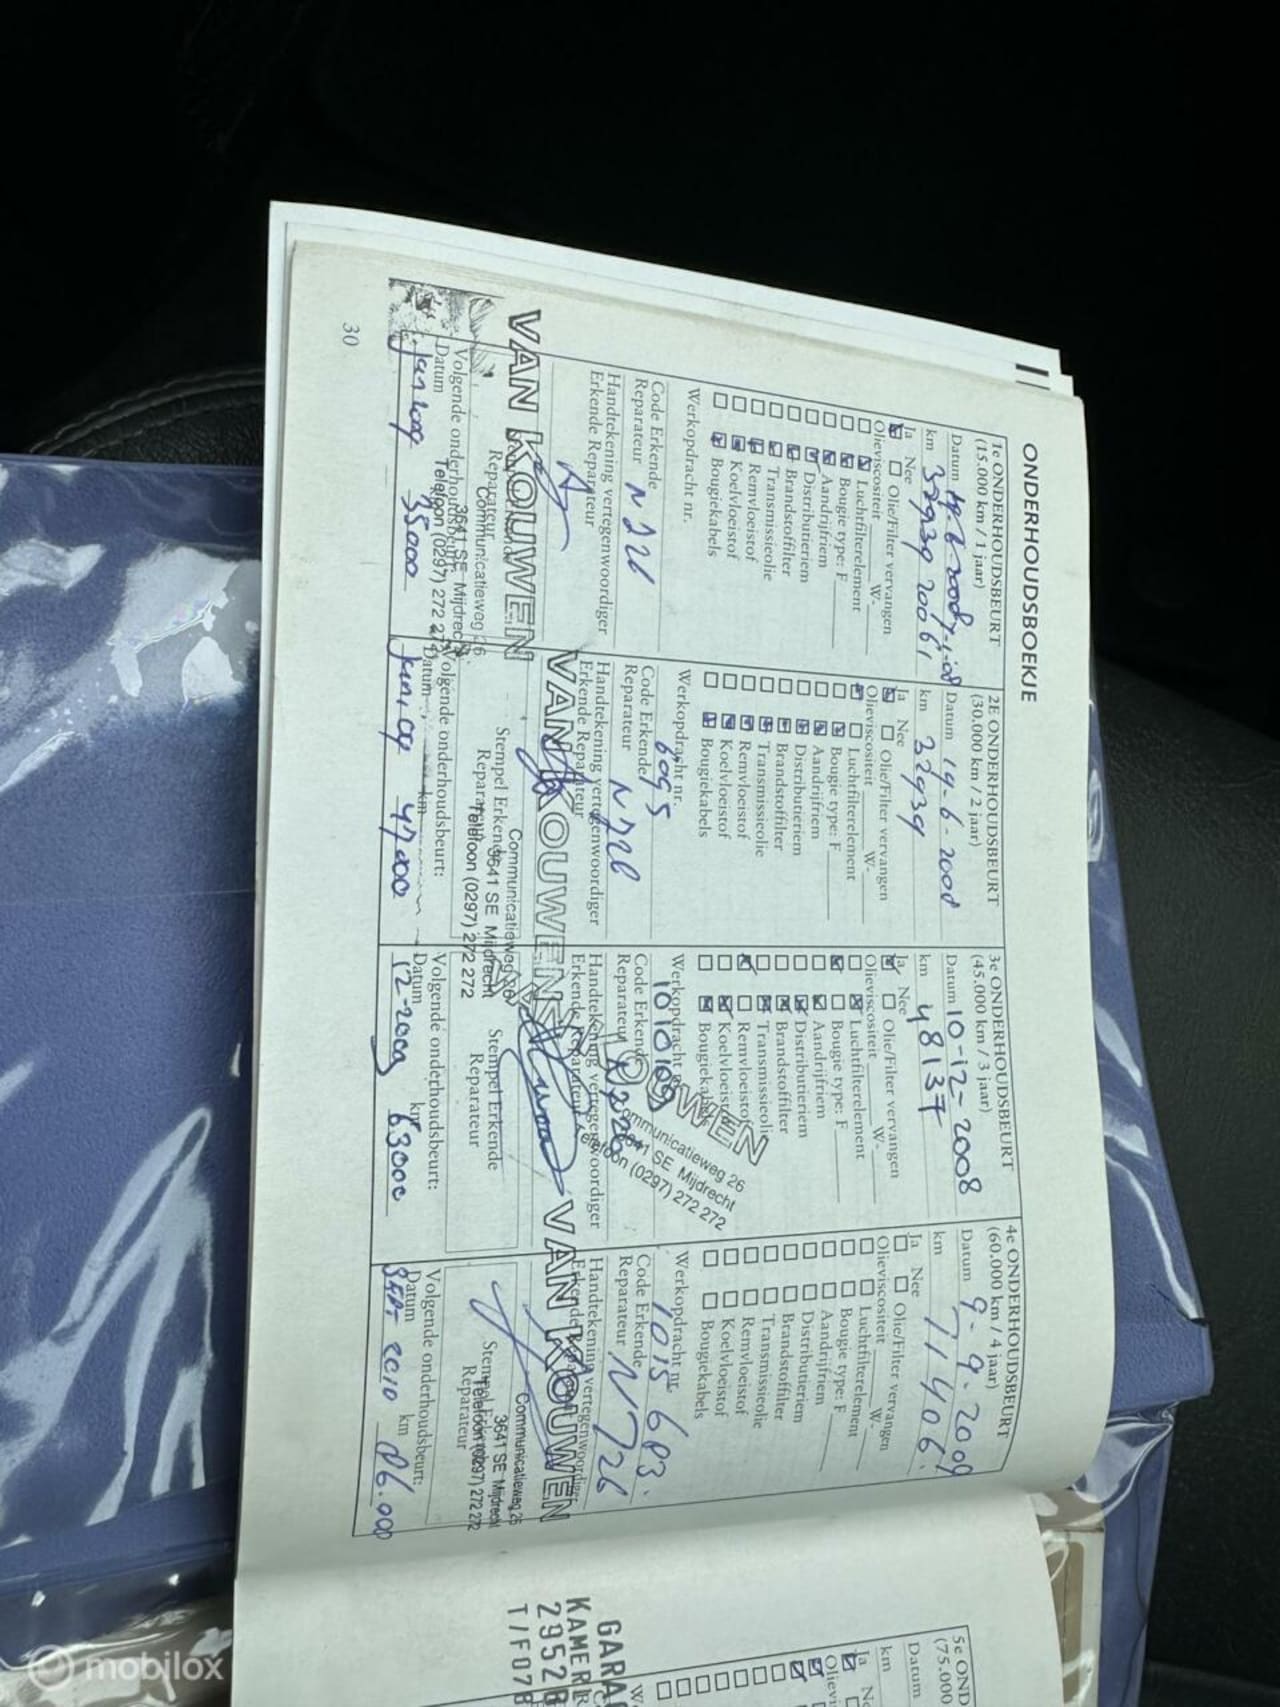 ONDERHOUDSBOEKJE
1e ONDERHOUDSBEURT
(15.000 km / 1 jaar)
Datum
km 32939 20061
Ja Nee
Olie/Filter vervangen
Olieviscositeit W-
Luchtfilterelement
Bougie type: F
Aandrijfriem
Distributieriem
Brandstoffilter
Transmissieolie
Remvloeistof
Koelvloeistof
Bougiekabels
Werkopdracht nr.
Code Erkende
Reparateur
Handtekening vertegenwoordiger
Erkende Reparateur
VAN KOUWEN
Communicatieweg 26
3641 SE Mijdrecht
Telefoon (0297) 272 272
Reparateur
Volgende onderhoudsbeurt:
Datum
35000
2E ONDERHOUDSBEURT
(30.000 km / 2 jaar)
Datum 19-6-2008
km 32939
Ja Nee
Olie/Filter vervangen
Olieviscositeit W-
Luchtfilterelement
Bougie type: F
Aandrijfriem
Distributieriem
Brandstoffilter
Transmissieolie
Remvloeistof
Koelvloeistof
Bougiekabels
Werkopdracht nr.
6095
Code Erkende
Reparateur
Handtekening vertegenwoordiger
Erkende Reparateur
VAN KOUWEN
Communicatieweg 26
3641 SE Mijdrecht
Telefoon (0297) 272 272
Stempel Erkende
Reparateur
Volgende onderhoudsbeurt:
Datum km
Juni 09 47000
3e ONDERHOUDSBEURT
(45.000 km / 3 jaar)
Datum 10-12-2008
km 48137
Ja Nee
Olie/Filter vervangen
Olieviscositeit W-
Luchtfilterelement
Bougie type: F
Aandrijfriem
Distributieriem
Brandstoffilter
Transmissieolie
Remvloeistof
Koelvloeistof
Bougiekabels
Werkopdracht nr.
1010109
Code Erkende
Reparateur
Handtekening vertegenwoordiger
Erkende Reparateur
VAN KOUWEN
Communicatieweg 26
3641 SE Mijdrecht
Telefoon (0297) 272 272
Stempel Erkende
Reparateur
Volgende onderhoudsbeurt:
Datum km
12-2009 63000
4e ONDERHOUDSBEURT
(60.000 km / 4 jaar)
Datum 9-9-2009
km 71406
Ja Nee
Olie/Filter vervangen
Olieviscositeit W-
Luchtfilterelement
Bougie type: F
Aandrijfriem
Distributieriem
Brandstoffilter
Transmissieolie
Remvloeistof
Koelvloeistof
Bougiekabels
Werkopdracht nr.
1015683.
Code Erkende
Reparateur N726
Handtekening vertegenwoordiger
Erkende Reparateur
VAN KOUWEN
Communicatieweg 26
3641 SE Mijdrecht
Telefoon (0297) 272 272
Reparateur
Volgende onderhoudsbeurt:
Datum km
SEPT 2010 86.000
30
5e OND
(75.000
Datum
km
Ja
Olievi
GARA
KAMER
2952B
T/F078
mobilox